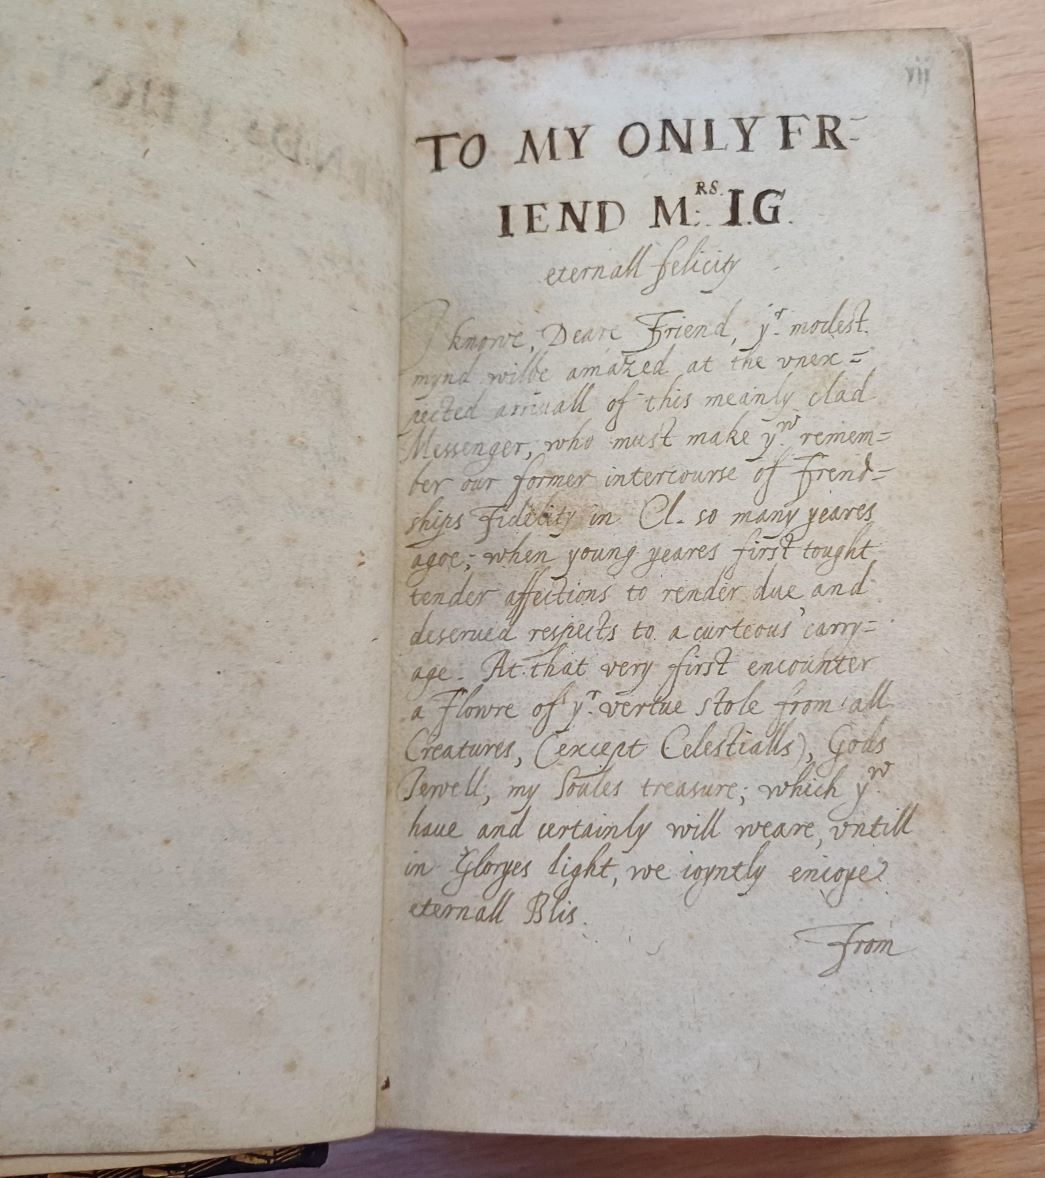 vij
TO MY ONLY FR=
IEND M:RS. I.G.
eternall felicity
I knowe, Deare Friend, yr. modest
mynd wilbe amazed at the vnex=
pected arriuall of this meanly clad
Messenger, who must make yw. remem=
ber our former intercourse of Frend=
ships Fidelity in Cl. so many yeares
agoe; when young yeares first tought
tender affections to render due and
deserued respects to a curteous carry=
age. At that very first encounter
a Flowre of yr. vertue stole from all
Creatures, (except Celestialls), Gods
Iewell, my Soules treasure; which yw.
haue and certainly will weare, vntill
in Gloryes light, we ioyntly enioye
eternall Blis.
From